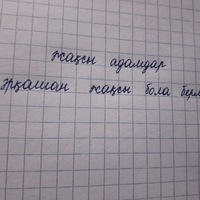 жақсы адамдар
әрқашан жақсы бола берм